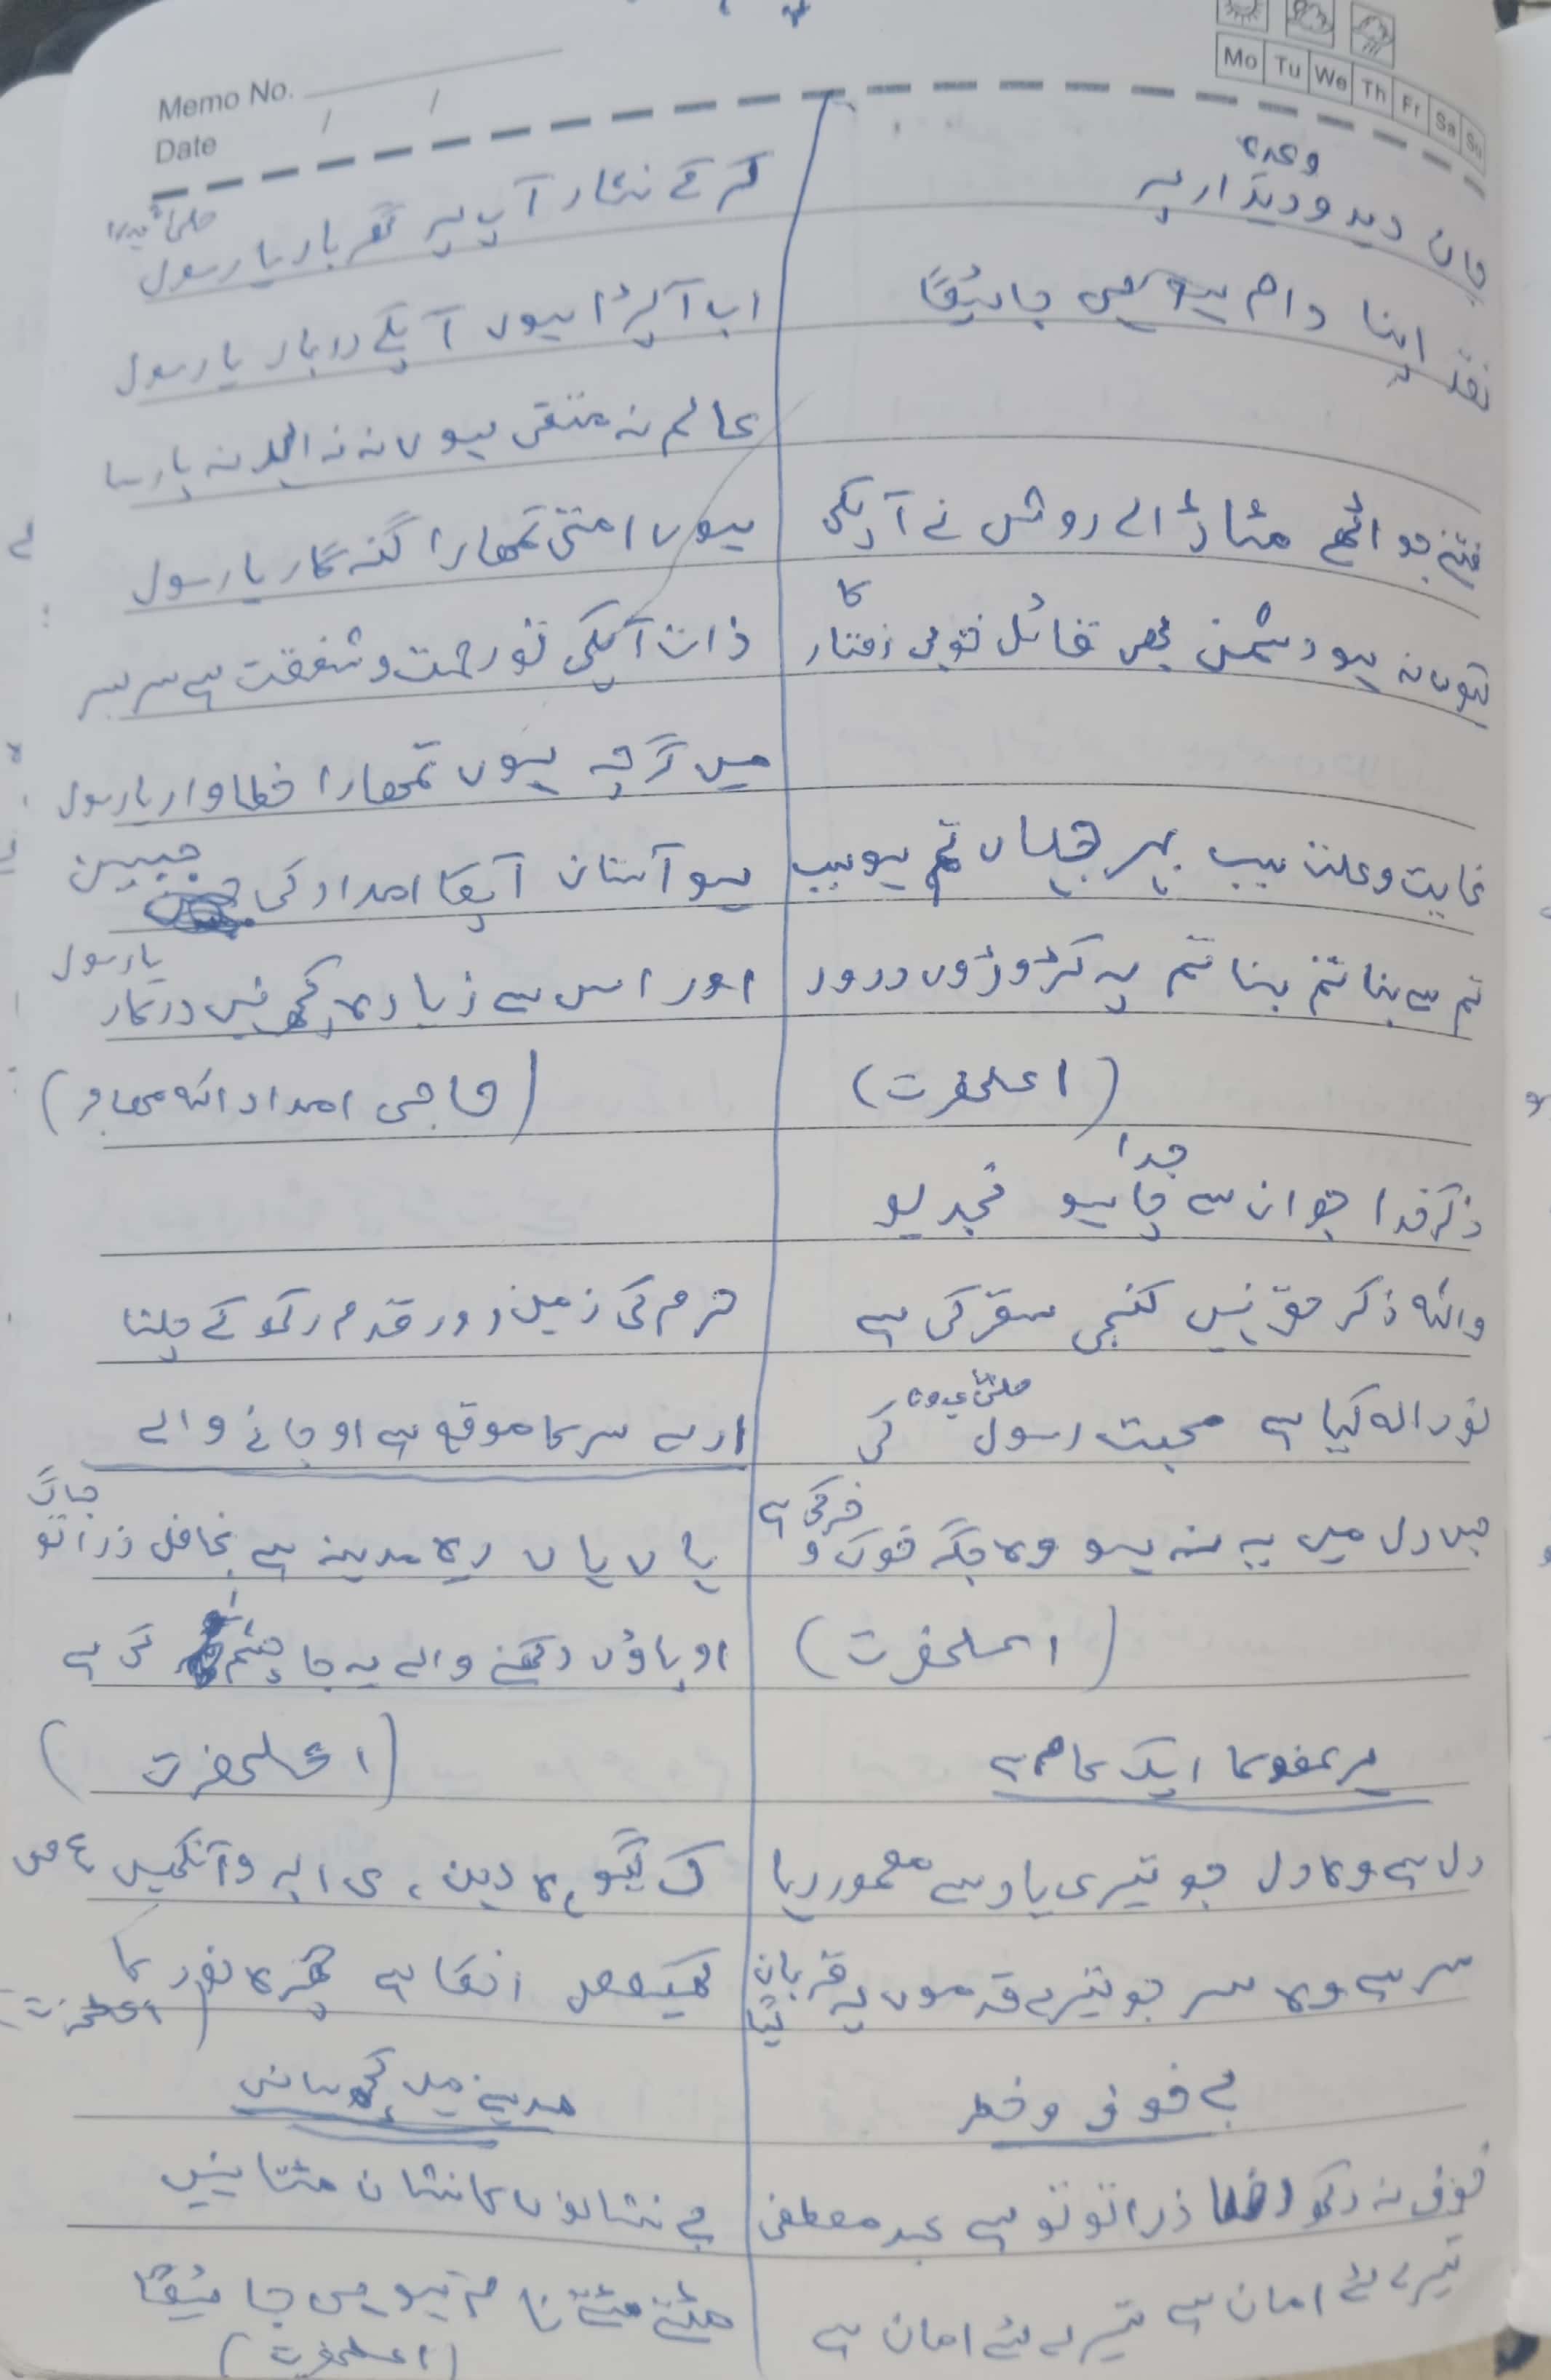 Memo No.
Date / /
Mo Tu We Th Fr Sa Su
وعدہ
جان دید و دیدار پہ
نقد اپنا دام ہو ہی جائیگا
فتنے جو اٹھے مٹا ڈالے روش نے آپکی
کیوں نہ ہو دشمن بھی قائل خوبی رفتار کا
غایت و علت سبب بہر جہاں تم ہو سبب
تم سے بنا تم بنا تم پہ کروڑوں درود
(اعلحضرت)
ذکر خدا جو ان سے جدا چاہو نجدیو
واللہ ذکر حق نہیں کنجی سقر کی ہے
نور الہ کیا ہے محبت رسول صلی اللہ علیہ وسلم کی
جس دل میں یہ نہ ہو وہ جگہ خوک و خر کی ہے
(اعلحضرت)
ہر عضو کا ایک کام ہے
دل ہے وہ دل جو تیری یاد سے معمور رہا
سر ہے وہ سر جو تیرے قدموں پہ قربان گیا
بے خوف و خطر
خوف نہ رکھ رضا ذرا تو تو ہے عبد مصطفی
تیرے لئے امان ہے تیرے لئے امان ہے
کر کے نثار آپ پر گھر بار یا رسول
اب آ پڑا ہوں آپکے دربار یا رسول
عالم نہ متقی ہوں نہ زاہد نہ پارسا
ہوں امتی تمھارا گنہ گار یا رسول
ذات آپکی تو رحمت و شفقت ہے سر بسر
میں گرچہ ہوں تمھارا خطاوار یا رسول
ہو آستان آپکا امداد کی جبیں
اور اس سے زیادہ کچھ نہیں درکار یا رسول
(حاجی امداد اللہ مہاجر)
حرم کی زمیں اور قدم رکھ کے چلنا
ارے سر کا موقع ہے او جانے والے
ہاں ہاں رہ مدینہ ہے غافل ذرا تو جاگ
او پاؤں رکھنے والے یہ جا چشم و سر کی ہے
(اعلحضرت)
ک گیسو، ہ دہن، ی ابرو آنکھیں ع ص
کھیعص انکا ہے چہرہ نور کا
(اعلحضرت)
مدینے میں پھانسی
بے نشانوں کا نشان مٹتا نہیں
مٹتے مٹتے نام ہو ہی جائیگا
(اعلحضرت)